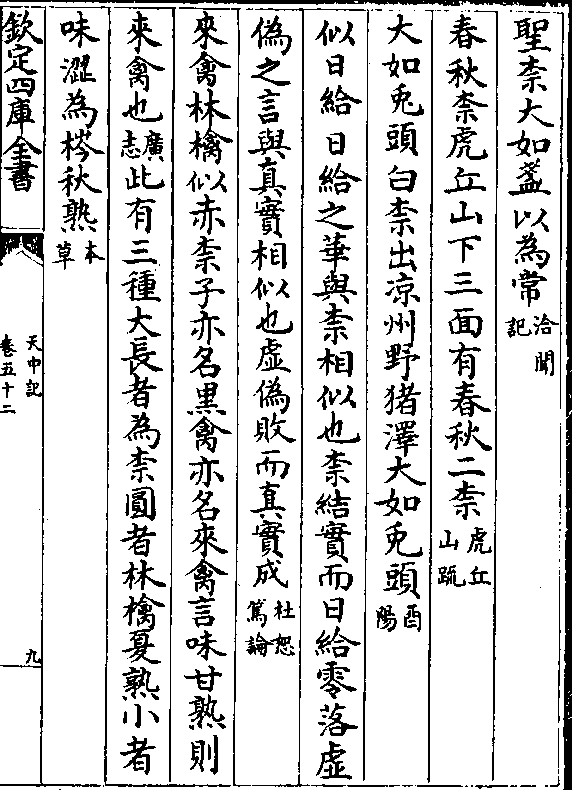 聖柰大如盞以為常洽聞記
春秋柰虎丘山下三面有春秋二柰虎丘山疏
大如兎頭白柰出凉州野猪澤大如兎頭酉陽
似日給日給之華與柰相似也柰結實而日給零落虛
偽之言與真實相似也虛偽敗而真實成杜恕篤論
來禽林檎似赤柰子亦名黒禽亦名來禽言味甘熟則
來禽也廣志此有三種大長者為柰圓者林檎夏熟小者
味澀為梣秋熟本草
欽定四庫全書
天中記
卷五十二
九